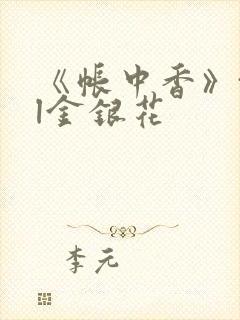 《帐中香》
|金银花
李元